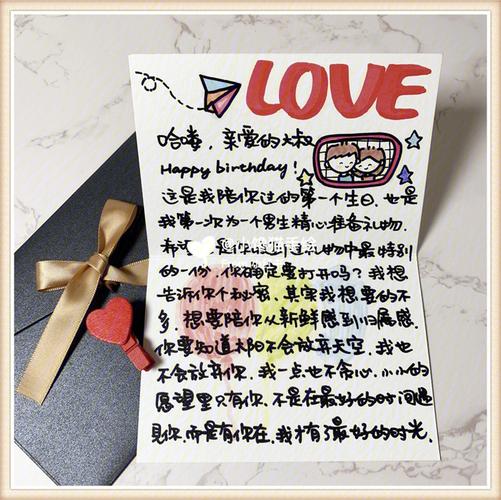 LOVE
哈喽，亲爱的大叔
Happy birthday!
这是我陪你过的第一个生日，也是
我第一次为一个男生精心准备礼物.
希 物中最特别
的一份，你确定要打开吗？我想
告诉你个秘密，其实我想要的不
多，想要陪你从新鲜感到归属感.
你要知道太阳不会放弃天空，我也
不会放弃你，我一点也不贪心，小小的
愿望里只有你，不是在最好的时间遇
见你，而是有你在，我才有了最好的时光.